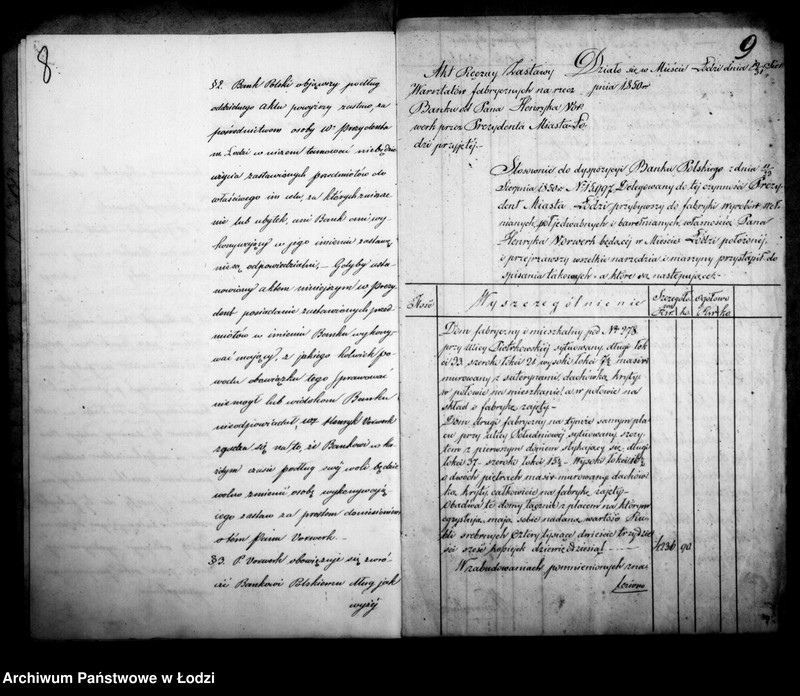 8
§2. Bank Polski objąwszy podług
oddzielnego aktu powyższy zastaw, za
pośrednictwem osoby w-Prezydenta
m. Łodzi w niczem tamować niebędzie
użycia zastawionych przedmiotów do
właściwego im celu, za których zniszcze
nie lub ubytek, ani Bank ani wy-
konywujący w jego imieniu zastawę
nie są odpowiedzialni,- Gdyby usta-
nowiony aktem niniejszym w Prezy
dent posiadanie zastawionych przed-
miotów w imieniu Banku wykony-
wać mający, z jakiego kolwiek po
wodu obowiązku tego sprawować
niemógł lub widokom Banku
nieodpowiadał, Henryk Vorwerk
zgadza się na to, że Bankowi w ka
żdym czasie podług swej woli będzie
wolno zmienić osobę wykonywają-
cego zastaw za prostem doniesieniem
o tém Panu Vorwerk.-
§3. P. Vorwerk obowiązuje się zwró-
cić Bankowi Polskiemu dług jak
wyżéj
9
Akt Rzeczny Zastawy
Warsztatów fabrycznych na rzecz
Banku od Pana Henryka Vor
werk przez Prezydenta Miasta Ło
dzi przyjętéj.-
Działo się w Mieście Łodzi dnia
pnia 1850 r
Stosownie do dyspozycyi Banku Polskiego z dnia
Sierpnia 1850 r No 15,997. Delegowany do téj czynności Prezy-
dent Miasta Łodzi przybywszy do fabryki wyrobów weł-
nianych, półjedwabnych i bawełnianych, własnością Pana
Henryka Vorwerk będącéj w Mieście Łodzi położonej,
i przejrzawszy wszelkie narzędzia i maszyny przystąpił do
spisania takowych, a które są następujące:
Ilość
Wyszczególnienie
Szczegóło
wo
Rsr. ko.
ogółowo
Rsr. ko.
Dom fabryczny i mieszkalny pod No 278
przy ulicy Piotrkowskiej sytuowany, długi łok
ci 33 szeroki łokci 21 wysoki łokci 7½ massiv
murowany z suterynami, dachówką kryty,
w połowie na mieszkanie, a w połowie na
skład i fabrykę zajęty.-
Dom drugi fabryczny na tymże samym pla
cu przy ulicy Południowej sytuowany, szczy
tem z pierwszym domem stykający się, długi
łokci 37- szeroki łokci 15½- Wysoki łokci
o dwóch piętrach massiv murowany, dachów
ką kryty, całkowicie na fabrykę zajęty.-
Obadwa te domy łącznie z placem na którym
egzystują, mają sobie nadaną wartość Ru-
bli srebrnych Cztery tysiące dwieście trzydzie
ści sześć kopiejek dziewięćdziesiąt
4236 90
W zabudowaniach pomienionych zna-
leziono
Archiwum Państwowe w Łodzi